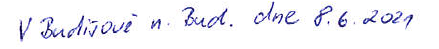 V Budišově n. Bud. dne 8.6.2021